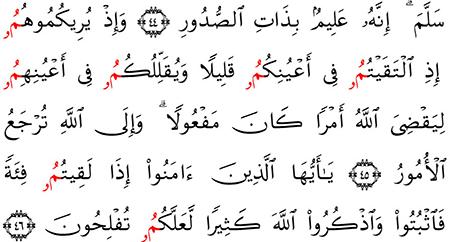 سَلَّمَۗ إِنَّهُۥ عَلِيمُۢ بِذَاتِ اِ۬لصُّدُورِ ٤٤ وَإِذْ يُرِيكُمُوهُمُۥ
إِذِ اِ۬لْتَقَيْتُمُۥ فِىٓ أَعْيُنِكُمُۥ قَلِيلًا وَيُقَلِّلُكُمُۥ فِىٓ أَعْيُنِهِمُۥ
لِيَقْضِىَ اَ۬للَّهُ أَمْرًا كَانَ مَفْعُولًاۗ وَإِلَى اَ۬للَّهِ تُرْجَعُ
اُ۬لْأُمُورُ ٤٥ يَٰٓأَيُّهَا اَ۬لَّذِينَ ءَامَنُوٓا۟ إِذَا لَقِيتُمُۥ فِئَةً
فَاَثْبُتُوا۟ وَاَذْكُرُوا۟ اُ۬للَّهَ كَثِيرًا لَّعَلَّكُمُۥ تُفْلِحُونَ ٤٦